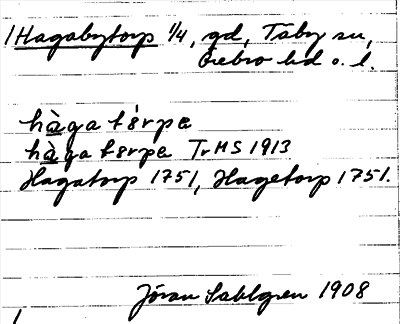 1 Hagabytorp 1/4, gd, Täby sn,
Örebro hd o. l.
hàga tórpe
hàga tórpe TrHS 1913
Hagatorp 1751, Hagetorp 1751.
Jöran Sahlgren 1908
1